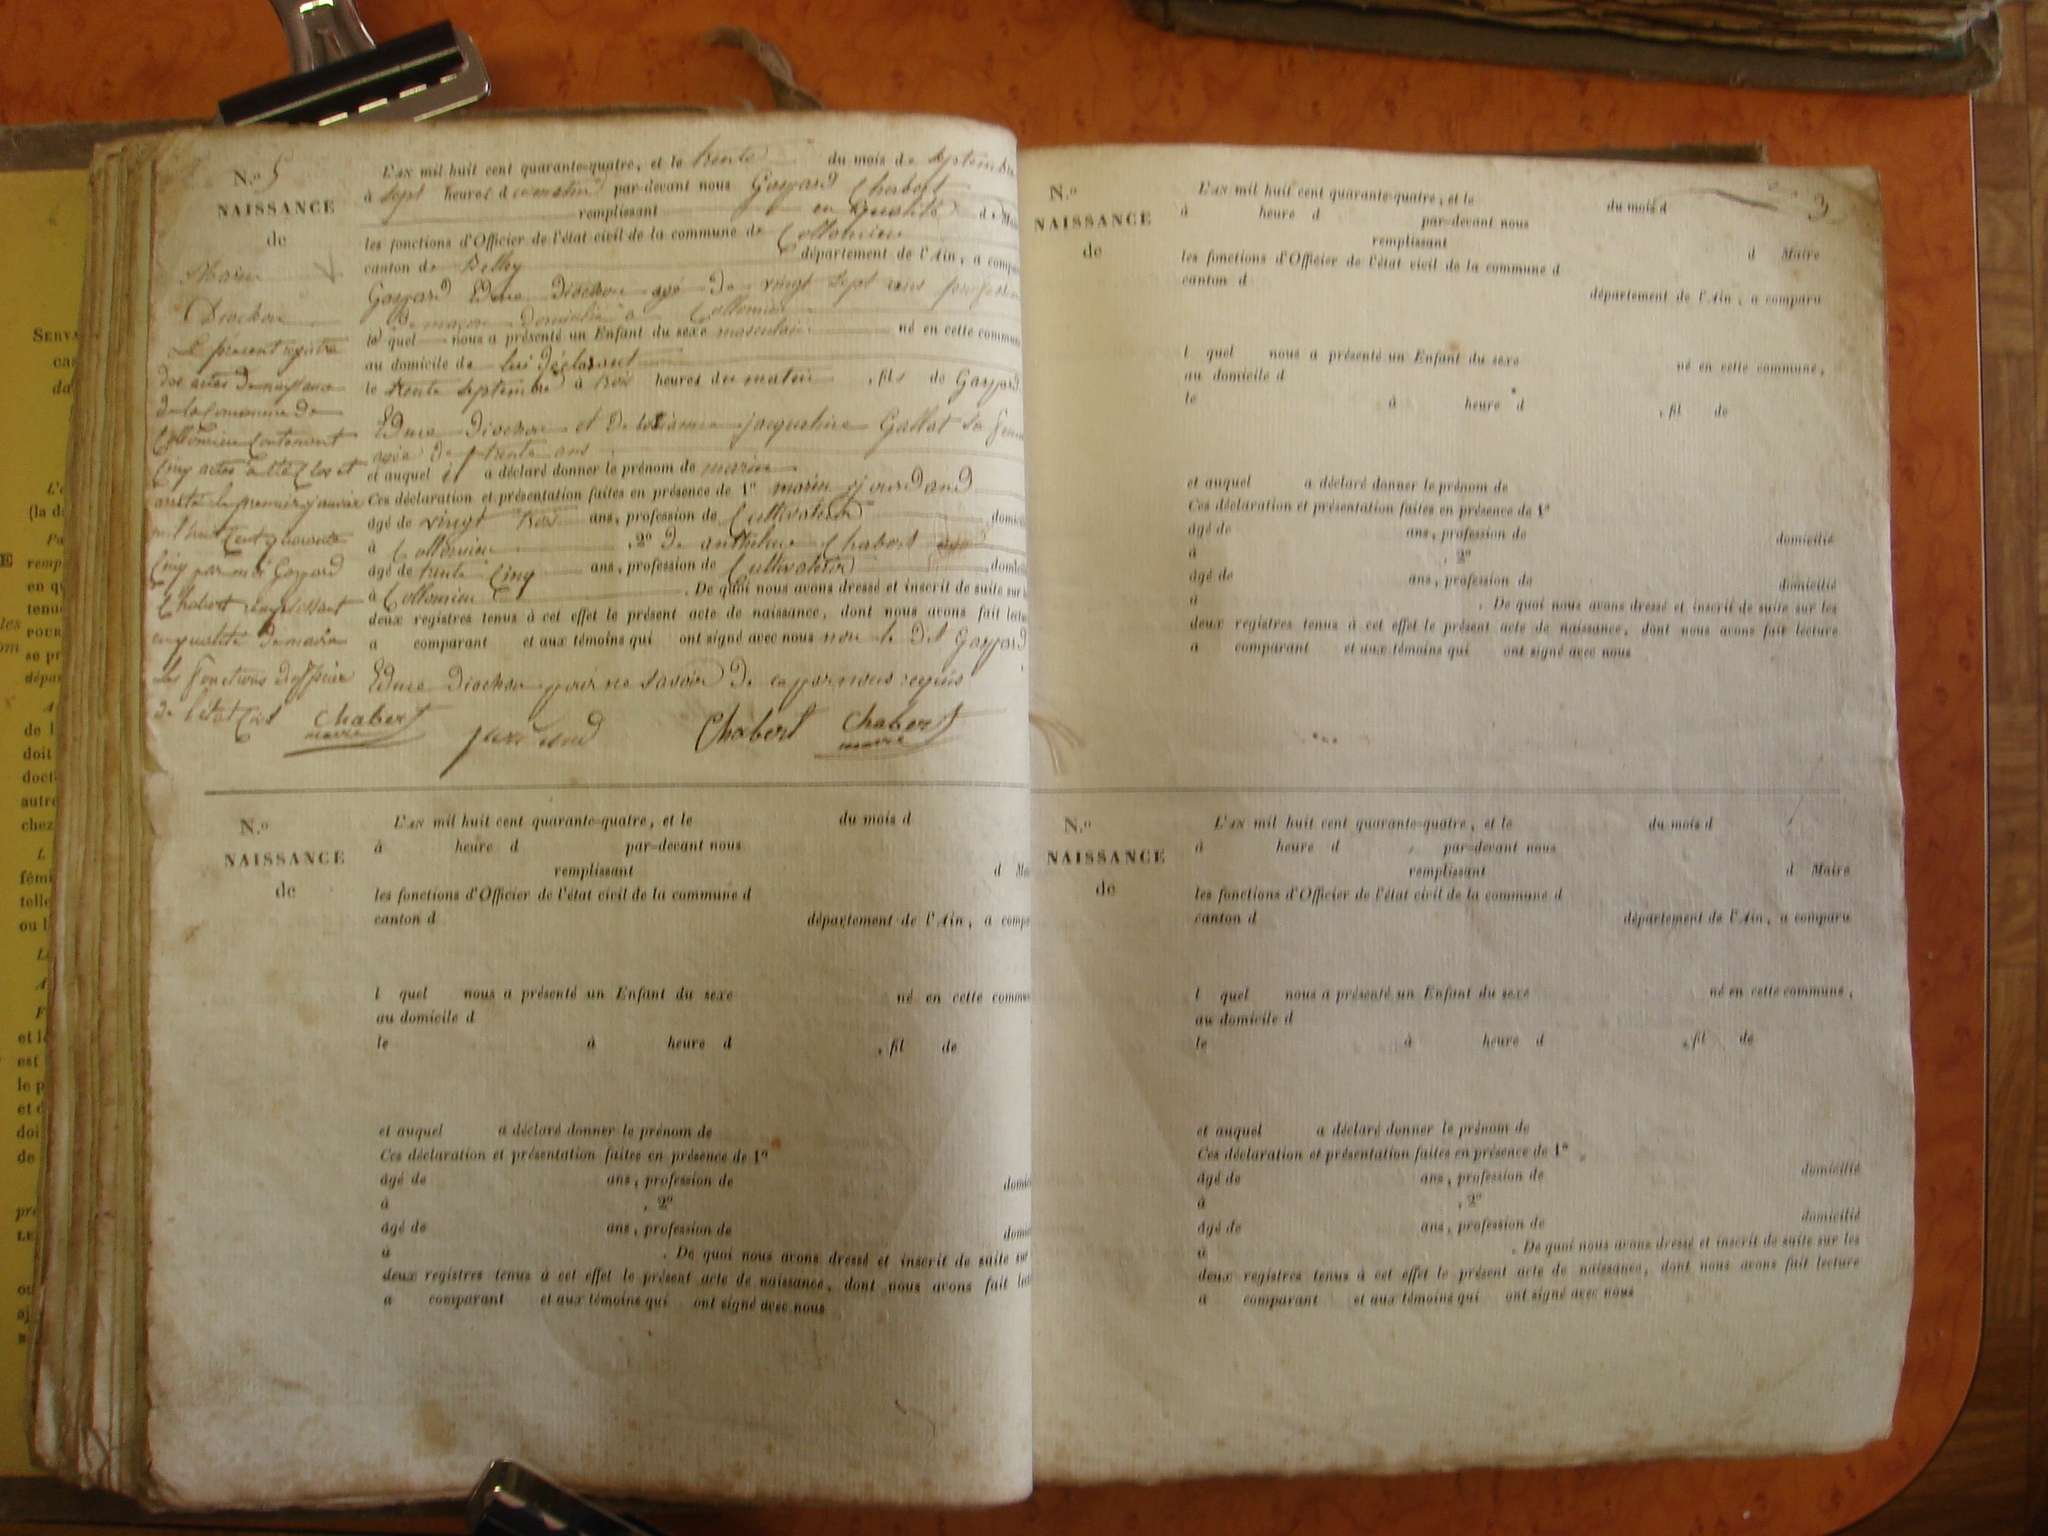 N.o 5
NAISSANCE
de
Marin
Diochon
Le présent registre
des actes de naissance
de la Commune de
Collomieu Contenant
Cinq actes a été Clos et
arrêté le premier janvier
mil huit Cent quarante
Cinq par moi Gaspard
Chabert remplissant
en qualité de maire
les fonctions d'officier
de l'état Civil Chabert
maire
L'AN mil huit cent quarante-quatre, et le trente du mois de septembre
à sept heures du matin par-devant nous Gaspard Chabert
remplissant en qualité de Mai
les fonctions d'Officier de l'état civil de la commune de Collomieu
canton de Belley département de l'Ain, a compa
Gaspard Edme Diochon agé de vingt sept ans profession
de maçon domicilié à Collomieu
le quel nous a présenté un Enfant du sexe masculin né en cette commune
au domicile de lui déclarant
le trente septembre à trois heures du matin, fils de Gaspard
Edme Diochon et de jacqueline Gallat sa femme
agée de trente ans
et auquel il a déclaré donner le prénom de marin
Ces déclaration et présentation faites en présence de 1o marin jourdand
âgé de vingt trois ans, profession de Cultivateur domici
à Collomieu, 2o de anthelme Chabert
âgé de trente Cinq ans, profession de Cultivateur domici
à Collomieu. De quoi nous avons dressé et inscrit de suite sur
deux registres tenus à cet effet le présent acte de naissance, dont nous avons fait lectu
a comparant et aux témoins qui ont signé avec nous non le dit Gaspard
Edme Diochon pour ne savoir de ce par nous requis
jourdand Chabert Chabert
maire
N.o
NAISSANCE
de
L'AN mil huit cent quarante-quatre, et le du mois d
à heure d par-devant nous
remplissant d Mai
les fonctions d'Officier de l'état civil de la commune d
canton d département de l'Ain, a compa
l quel nous a présenté un Enfant du sexe né en cette commun
au domicile d
le à heure d , fil de
et auquel a déclaré donner le prénom de
Ces déclaration et présentation faites en présence de 1o
âgé de ans, profession de domici
à , 2o
âgé de ans, profession de domici
à . De quoi nous avons dressé et inscrit de suite sur
deux registres tenus à cet effet le présent acte de naissance, dont nous avons fait lect
a comparant et aux témoins qui ont signé avec nous
3
N.o
NAISSANCE
de
L'AN mil huit cent quarante-quatre, et le du mois d
à heure d par-devant nous
remplissant d Maire
les fonctions d'Officier de l'état civil de la commune d
canton d département de l'Ain, a comparu
l quel nous a présenté un Enfant du sexe né en cette commune,
au domicile d
le à heure d , fil de
et auquel a déclaré donner le prénom de
Ces déclaration et présentation faites en présence de 1o
âgé de ans, profession de domicilié
à , 2o
âgé de ans, profession de domicilié
à . De quoi nous avons dressé et inscrit de suite sur les
deux registres tenus à cet effet le présent acte de naissance, dont nous avons fait lecture
a comparant et aux témoins qui ont signé avec nous
N.o
NAISSANCE
de
L'AN mil huit cent quarante-quatre, et le du mois d
à heure d par-devant nous
remplissant d Maire
les fonctions d'Officier de l'état civil de la commune d
canton d département de l'Ain, a comparu
l quel nous a présenté un Enfant du sexe né en cette commune,
au domicile d
le à heure d , fil de
et auquel a déclaré donner le prénom de
Ces déclaration et présentation faites en présence de 1o
âgé de ans, profession de domicilié
à , 2o
âgé de ans, profession de domicilié
à . De quoi nous avons dressé et inscrit de suite sur les
deux registres tenus à cet effet le présent acte de naissance, dont nous avons fait lecture
a comparant et aux témoins qui ont signé avec nous